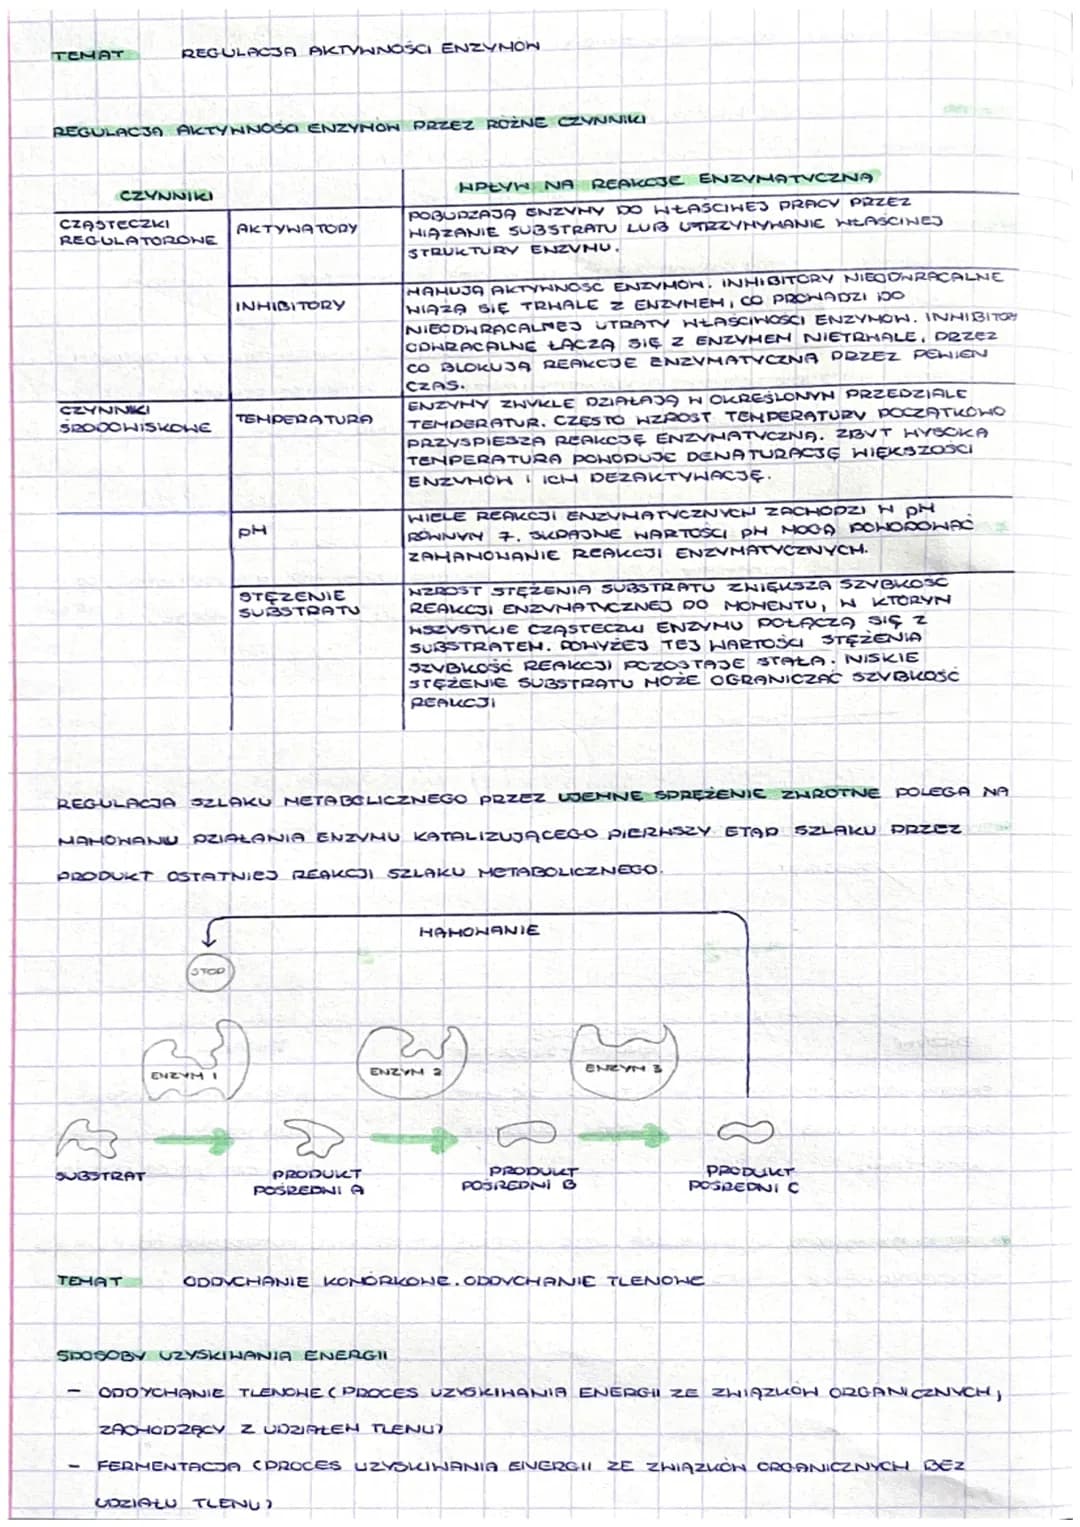 TEMAT REGULACJA AKTYWNOŚCI ENZYMÓW
REGULACJA AKTYWNOŚCI ENZYMÓW PRZEZ RÓŻNE CZYNNIKI
CZYNNIKI
WPŁYW NA REAKCJE ENZYMATYCZNĄ
CZĄSTECZKI
REGULATOROWE
AKTYWATORY
POBUDZAJĄ ENZYMY DO WŁAŚCIWEJ PRACY PRZEZ
WIĄZANIE SUBSTRATU LUB UTRZYMYWANIE WŁAŚCIWEJ
STRUKTURY ENZYMU.
INHIBITORY
HAMUJĄ AKTYWNOŚĆ ENZYMÓW. INHIBITORY NIEODWRACALNE
WIĄŻĄ SIĘ TRWALE Z ENZYMEM, CO PROWADZI DO
NIEODWRACALNEJ UTRATY WŁAŚCIWOŚCI ENZYMÓW. INHIBITORY
ODWRACALNE ŁĄCZĄ SIĘ Z ENZYMEM NIETRWALE, PRZEZ
CO BLOKUJĄ REAKCJE ENZYMATYCZNĄ PRZEZ PEWIEN
CZAS.
CZYNNIKI
ŚRODOWISKOWE
TEMPERATURA
ENZYMY ZWYKLE DZIAŁAJĄ W OKREŚLONYM PRZEDZIALE
TEMPERATUR. CZĘSTO WZROST TEMPERATURY POCZĄTKOWO
PRZYSPIESZA REAKCJĘ ENZYMATYCZNĄ. ZBYT WYSOKA
TEMPERATURA POWODUJE DENATURACJĘ WIĘKSZOŚCI
ENZYMÓW I ICH DEZAKTYWACJĘ.
pH
WIELE REAKCJI ENZYMATYCZNYCH ZACHODZI W pH
RÓWNYM 7. SKRAJNE WARTOŚCI pH MOGĄ POWODOWAĆ
ZAHAMOWANIE REAKCJI ENZYMATYCZNYCH.
STĘŻENIE
SUBSTRATU
WZROST STĘŻENIA SUBSTRATU ZWIĘKSZA SZYBKOŚĆ
REAKCJI ENZYMATYCZNEJ DO MOMENTU, W KTÓRYM
WSZYSTKIE CZĄSTECZKI ENZYMU POŁĄCZĄ SIĘ Z
SUBSTRATEM. POWYŻEJ TEJ WARTOŚCI STĘŻENIA
SZYBKOŚĆ REAKCJI POZOSTAJE STAŁA. NISKIE
STĘŻENIE SUBSTRATU MOŻE OGRANICZAĆ SZYBKOŚĆ
REAKCJI
REGULACJA SZLAKU METABOLICZNEGO PRZEZ UJEMNE SPRĘŻENIE ZWROTNE POLEGA NA
HAMOWANIU DZIAŁANIA ENZYMU KATALIZUJĄCEGO PIERWSZY ETAP SZLAKU PRZEZ
PRODUKT OSTATNIEJ REAKCJI SZLAKU METABOLICZNEGO.
HAMOWANIE
STOP
ENZYM 1
ENZYM 2
ENZYM 3
SUBSTRAT
PRODUKT
POŚREDNI A
PRODUKT
POŚREDNI B
PRODUKT
POŚREDNI C
TEMAT ODDYCHANIE KOMÓRKOWE. ODDYCHANIE TLENOWE
SPOSOBY UZYSKIWANIA ENERGII
- ODDYCHANIE TLENOWE (PROCES UZYSKIWANIA ENERGII ZE ZWIĄZKÓW ORGANICZNYCH,
ZACHODZĄCY Z UDZIAŁEM TLENU)
- FERMENTACJA (PROCES UZYSKIWANIA ENERGII ZE ZWIĄZKÓW ORGANICZNYCH BEZ
UDZIAŁU TLENU)